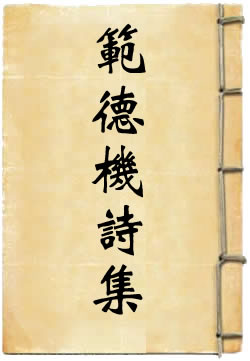 範德機詩集